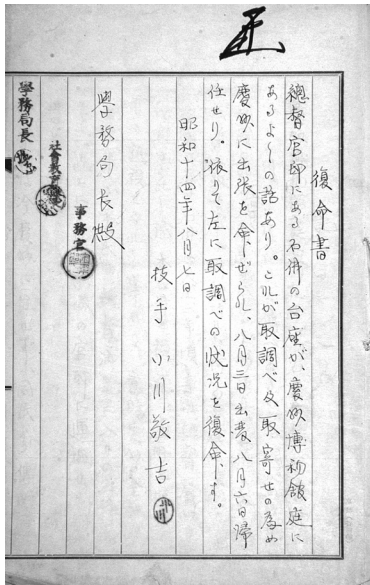 復命書
總督官邸にある石佛の台座が、慶州博物館庭に
あるよしの話あり。これが取調べ及取寄せの為め
慶州に出張を命ぜられ、八月三日出発八月六日帰
任せり。依りて左に取調べの狀況を復命す。
昭和十四年八月七日
技手 小川敬吉
學務局長殿
事務官
社會教育課長
學務局長